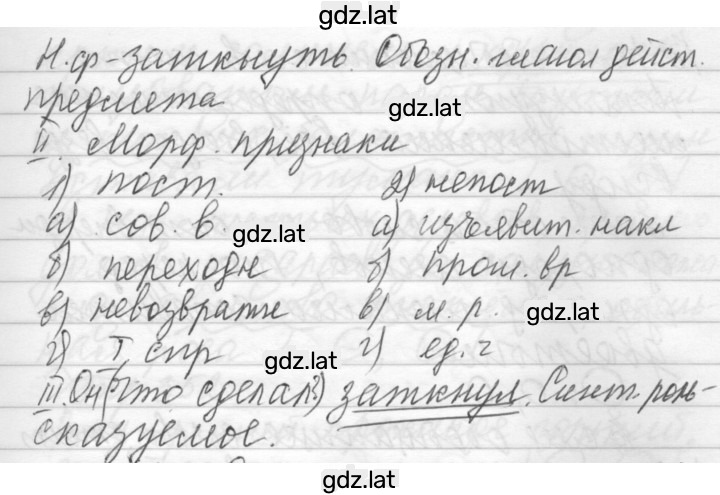 gdz.lat
Н.ф-заткнуть. Обозн. глагол дейст.
предмета gdz.lat
II. Морф. признаки
1) пост. 2) непост
а) сов. в. gdz.lat а) изъявит. накл
б) переходн б) прош. вр
в) невозвратн в) м. р. gdz.lat
г) I спр gdz.lat г) ед. ч
III. Он (что сделал?) заткнул. Синт. роль-
сказуемое.
gdz.lat